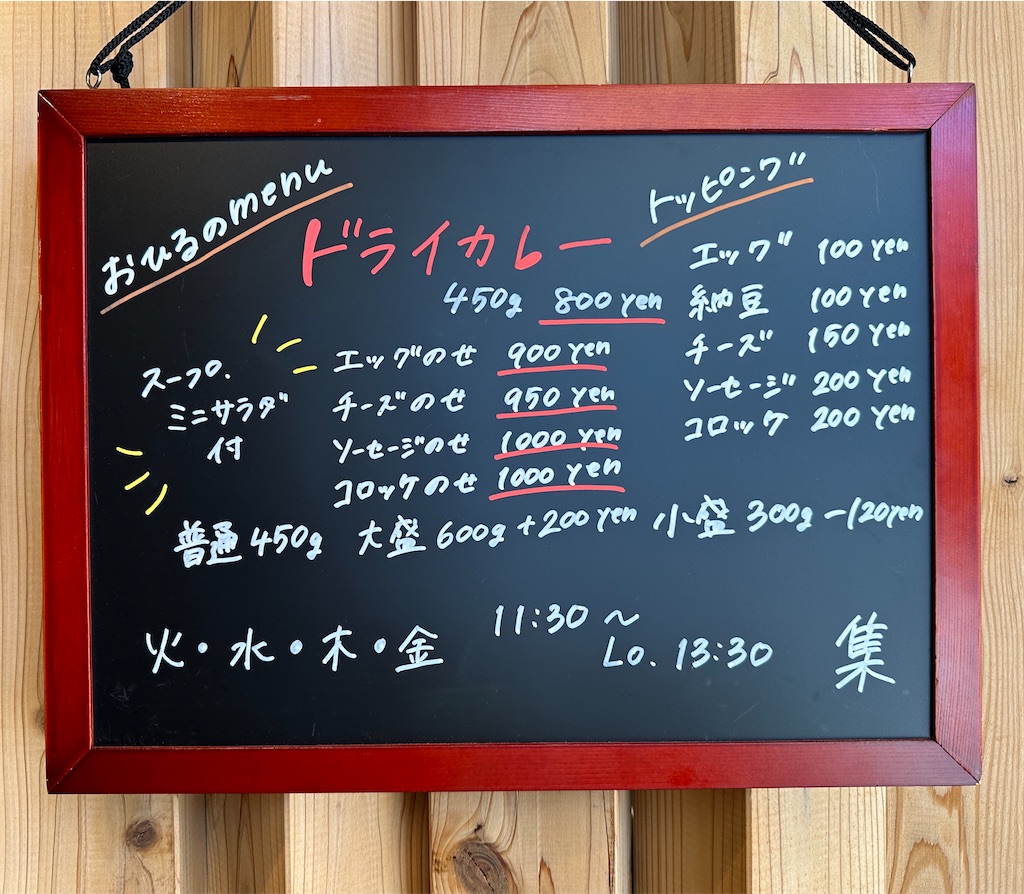 おひるのmenu
ドライカレー
450g 800yen
スープ.
ミニサラダ
付
エッグのせ 900yen
チーズのせ 950yen
ソーセージのせ 1000yen
コロッケのせ 1000yen
トッピング
エッグ 100yen
納豆 100yen
チーズ 150yen
ソーセージ 200yen
コロッケ 200yen
普通450g 大盛600g+200yen 小盛300g-120yen
火・水・木・金 11:30~
Lo. 13:30
集